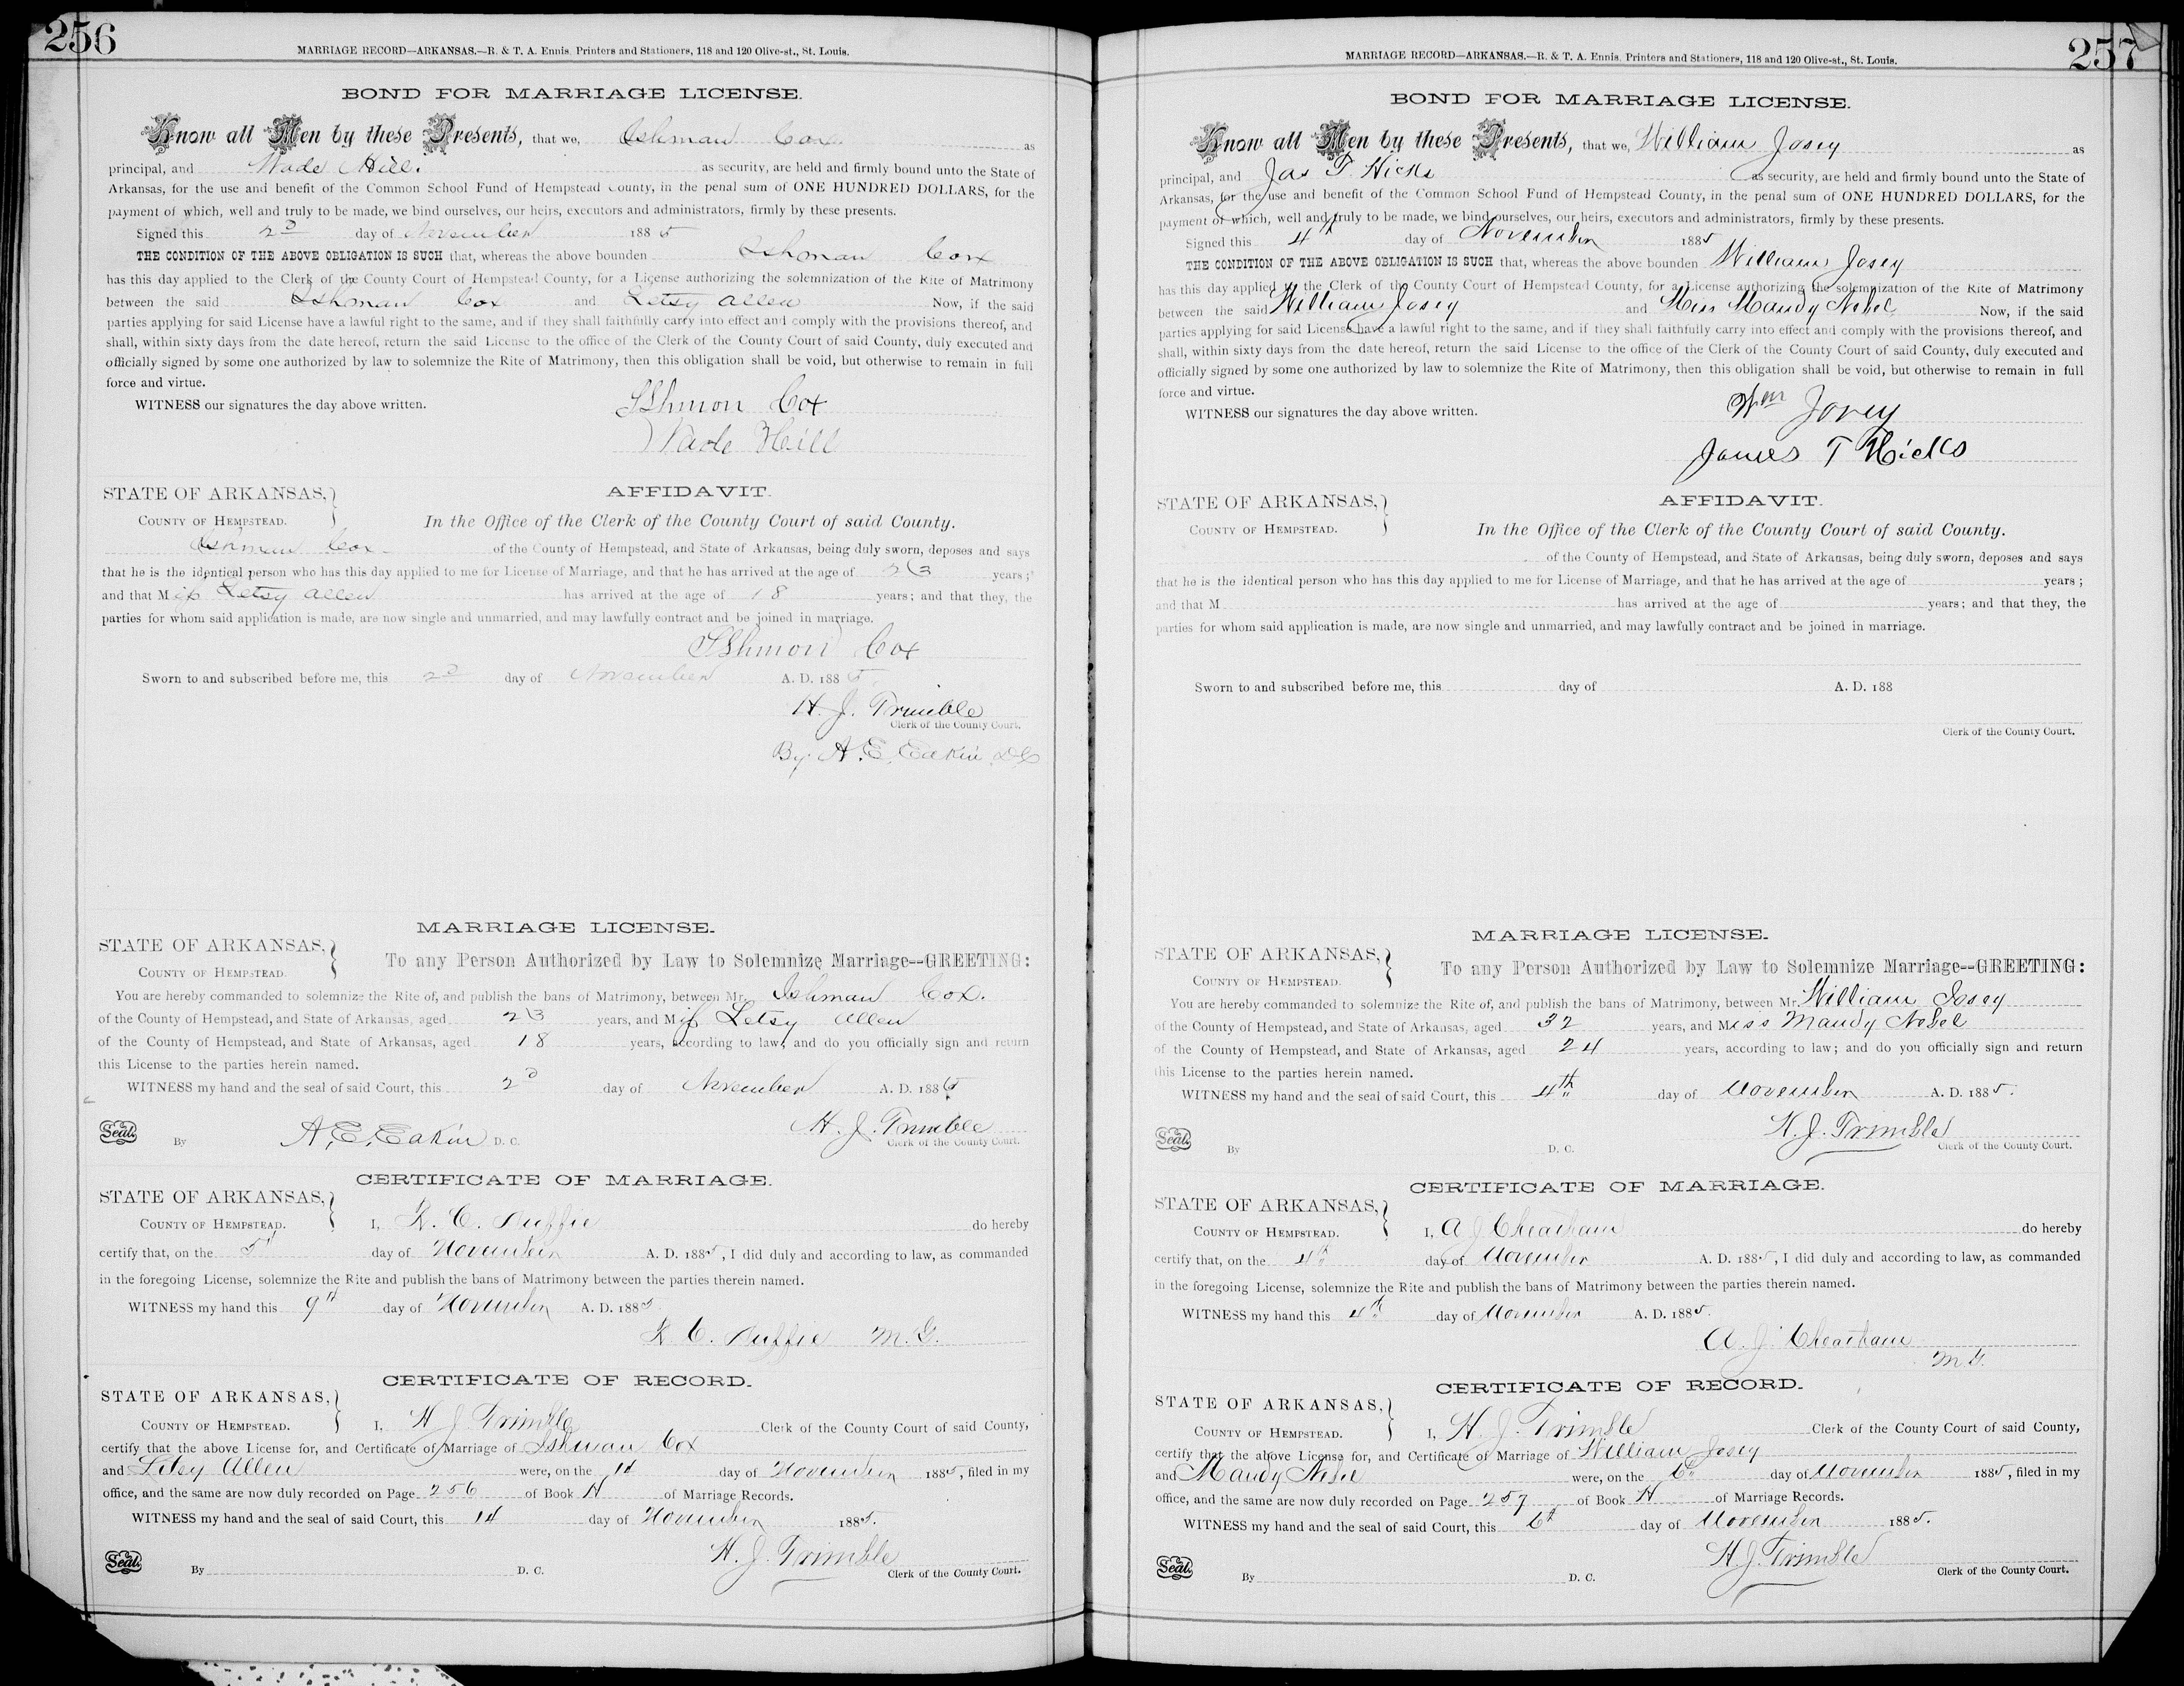 256
MARRIAGE RECORD—ARKANSAS.—R. & T. A. Ennis. Printers and Stationers, 118 and 120 Olive-st., St. Louis.
BOND FOR MARRIAGE LICENSE.
Know all Men by these Presents, that we, Ishman Cox as
principal, and Wade Hill. as security, are held and firmly bound unto the State of
Arkansas, for the use and benefit of the Common School Fund of Hempstead County, in the penal sum of ONE HUNDRED DOLLARS, for the
payment of which, well and truly to be made, we bind ourselves, our heirs, executors and administrators, firmly by these presents.
Signed this 2d day of November 1885
THE CONDITION OF THE ABOVE OBLIGATION IS SUCH that, whereas the above bounden Ishman Cox
has this day applied to the Clerk of the County Court of Hempstead County, for a License authorizing the solemnization of the Rite of Matrimony
between the said Ishman Cox and Letsy Allen Now, if the said
parties applying for said License have a lawful right to the same, and if they shall faithfully carry into effect and comply with the provisions thereof, and
shall, within sixty days from the date hereof, return the said License to the office of the Clerk of the County Court of said County, duly executed and
officially signed by some one authorized by law to solemnize the Rite of Matrimony, then this obligation shall be void, but otherwise to remain in full
force and virtue.
WITNESS our signatures the day above written. Ishmon Cox
Wade Hill
STATE OF ARKANSAS, AFFIDAVIT.
COUNTY OF HEMPSTEAD. In the Office of the Clerk of the County Court of said County.
Ishman Cox of the County of Hempstead, and State of Arkansas, being duly sworn, deposes and says
that he is the identical person who has this day applied to me for License of Marriage, and that he has arrived at the age of 23 years;
and that Miss Letsy Allen has arrived at the age of 18 years; and that they, the
parties for whom said application is made, are now single and unmarried, and may lawfully contract and be joined in marriage.
Ishmon Cox
Sworn to and subscribed before me, this 2d day of November A. D. 1885.
H. J. Trimble
Clerk of the County Court.
By A. E. Eakin D.C.
MARRIAGE LICENSE.
STATE OF ARKANSAS,
COUNTY OF HEMPSTEAD. To any Person Authorized by Law to Solemnize Marriage--GREETING:
You are hereby commanded to solemnize the Rite of, and publish the bans of Matrimony, between Mr. Ishman Cox.
of the County of Hempstead, and State of Arkansas, aged 23 years, and Miss Letsy Allen
of the County of Hempstead, and State of Arkansas, aged 18 years, according to law; and do you officially sign and return
this License to the parties herein named.
WITNESS my hand and the seal of said Court, this 2d day of November A. D. 1885
Seal. By A. E. Eakin D. C. H. J. Trimble
Clerk of the County Court.
CERTIFICATE OF MARRIAGE.
STATE OF ARKANSAS,
COUNTY OF HEMPSTEAD. I, R. C. Ruffie do hereby
certify that, on the 5th day of November A. D. 1885, I did duly and according to law, as commanded
in the foregoing License, solemnize the Rite and publish the bans of Matrimony between the parties therein named.
WITNESS my hand this 9th day of November A. D. 1885.
R. C. Ruffie M. G.
CERTIFICATE OF RECORD.
STATE OF ARKANSAS,
COUNTY OF HEMPSTEAD. I, H. J. Trimble Clerk of the County Court of said County,
certify that the above License for, and Certificate of Marriage of Ishman Cox
and Letsy Allen were, on the day of November 1885, filed in my
office, and the same are now duly recorded on Page 256 of Book H of Marriage Records.
WITNESS my hand and the seal of said Court, this day of November 1885.
Seal. By D. C. H. J. Trimble
Clerk of the County Court.
257
MARRIAGE RECORD—ARKANSAS.—R. & T. A. Ennis. Printers and Stationers, 118 and 120 Olive-st., St. Louis.
BOND FOR MARRIAGE LICENSE.
Know all Men by these Presents, that we, William Josey as
principal, and Jas T. Hicks as security, are held and firmly bound unto the State of
Arkansas, for the use and benefit of the Common School Fund of Hempstead County, in the penal sum of ONE HUNDRED DOLLARS, for the
payment of which, well and truly to be made, we bind ourselves, our heirs, executors and administrators, firmly by these presents.
Signed this 4th day of November 1885
THE CONDITION OF THE ABOVE OBLIGATION IS SUCH that, whereas the above bounden William Josey
has this day applied to the Clerk of the County Court of Hempstead County, for a License authorizing the solemnization of the Rite of Matrimony
between the said William Josey and Miss Mandy Nobel Now, if the said
parties applying for said License have a lawful right to the same, and if they shall faithfully carry into effect and comply with the provisions thereof, and
shall, within sixty days from the date hereof, return the said License to the office of the Clerk of the County Court of said County, duly executed and
officially signed by some one authorized by law to solemnize the Rite of Matrimony, then this obligation shall be void, but otherwise to remain in full
force and virtue.
WITNESS our signatures the day above written. Wm Josey
James T Hicks
STATE OF ARKANSAS, AFFIDAVIT.
COUNTY OF HEMPSTEAD. In the Office of the Clerk of the County Court of said County.
of the County of Hempstead, and State of Arkansas, being duly sworn, deposes and says
that he is the identical person who has this day applied to me for License of Marriage, and that he has arrived at the age of years;
and that M has arrived at the age of years; and that they, the
parties for whom said application is made, are now single and unmarried, and may lawfully contract and be joined in marriage.
Sworn to and subscribed before me, this day of A. D. 188
Clerk of the County Court.
MARRIAGE LICENSE.
STATE OF ARKANSAS,
COUNTY OF HEMPSTEAD. To any Person Authorized by Law to Solemnize Marriage--GREETING:
You are hereby commanded to solemnize the Rite of, and publish the bans of Matrimony, between Mr. William Josey
of the County of Hempstead, and State of Arkansas, aged 32 years, and Miss Mandy Nobel
of the County of Hempstead, and State of Arkansas, aged 24 years, according to law; and do you officially sign and return
this License to the parties herein named.
WITNESS my hand and the seal of said Court, this 4th day of November A. D. 1885.
Seal. By D. C. H. J. Trimble
Clerk of the County Court.
CERTIFICATE OF MARRIAGE.
STATE OF ARKANSAS,
COUNTY OF HEMPSTEAD. I, A J Cheatham do hereby
certify that, on the 4th day of November A. D. 1885, I did duly and according to law, as commanded
in the foregoing License, solemnize the Rite and publish the bans of Matrimony between the parties therein named.
WITNESS my hand this 4th day of November A. D. 1885.
A. J. Cheatham
M G.
CERTIFICATE OF RECORD.
STATE OF ARKANSAS,
COUNTY OF HEMPSTEAD. I, H. J. Trimble Clerk of the County Court of said County,
certify that the above License for, and Certificate of Marriage of William Josey
and Mandy Nobel were, on the 6th day of November 1885, filed in my
office, and the same are now duly recorded on Page 257 of Book H of Marriage Records.
WITNESS my hand and the seal of said Court, this 6th day of November 1885.
Seal. By D. C. H. J. Trimble
Clerk of the County Court.